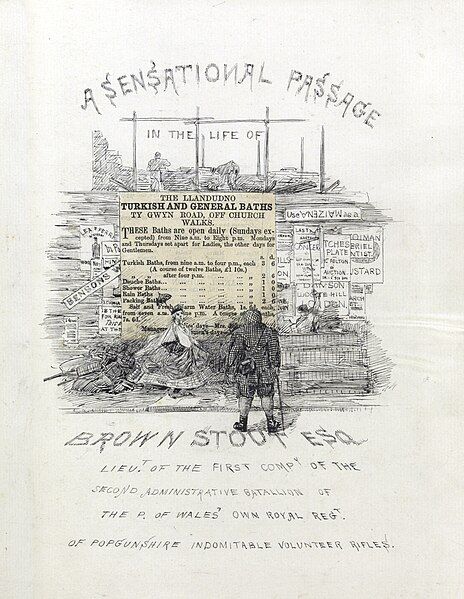 A SENSATIONAL PASSAGE
IN THE LIFE OF
THE LLANDUDNO
TURKISH AND GENERAL BATHS
TY GWYN ROAD, OFF CHURCH
WALKS.
THESE Baths are open daily (Sundays ex-
cepted) from Nine a.m. to Eight p.m. Mondays
and Thursdays set apart for Ladies, the other days for
Gentlemen.
Turkish Baths, from nine a.m. to four p.m., each
(A course of twelve Baths, £1 10s.)
after four p.m.
Douche Baths
Shower Baths
Rain Baths
Packing Baths
Warm Water Baths,
Manager
Use MAIZENA
BENSONS
LAST
TCHES
PLATE
CARLTON
AUCTION
BRIEL
NTIST.
USTARD
DAWSON
HILL
BROWN STOUT ESQ
LIEUT OF THE FIRST COMPY OF THE
SECOND ADMINISTRATIVE BATALLION OF
THE P. OF WALES' OWN ROYAL REGT.
OF POPGUNSHIRE INDOMITABLE VOLUNTEER RIFLES.